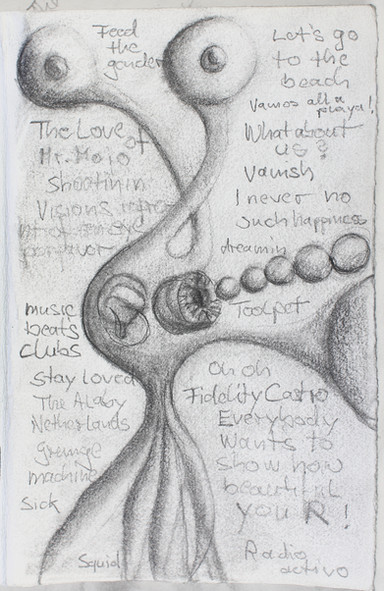 Feed
the
gander
Let's go
to the
beach
Vamos all a
playa!
The Love of
Mr. Mojo
Shootinin
Visions
porfavor
What about
us?
Vanish
I never no
such happiness
dreamin
music
beats
clubs
Toolpet
stay loved
The
Netherlands
grunge
machine
sick
Squid
Oh oh
Fidelity Castro
Everybody
wants to
show how
beautiful
you R!
Radio
activo